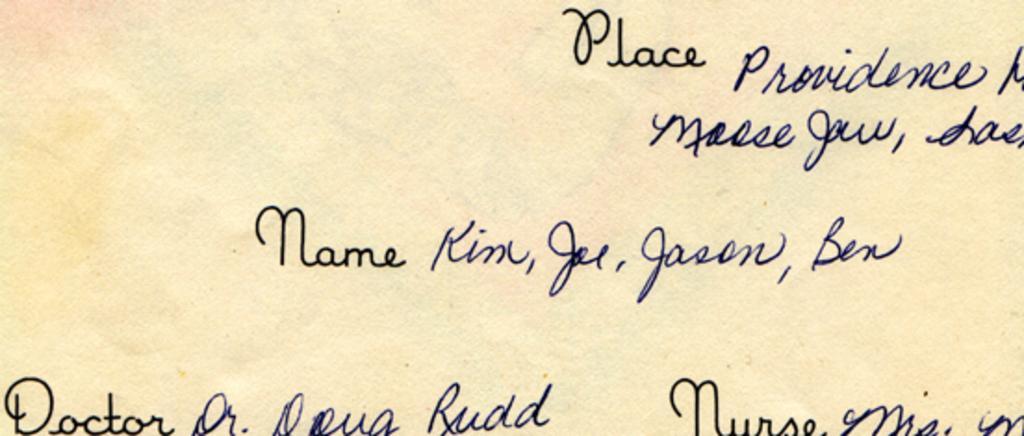 Place Providence
Moose Jaw,
Name Kim, Joe, Jason, Ben
Doctor Dr. Doug Rudd Nurse Mrs.